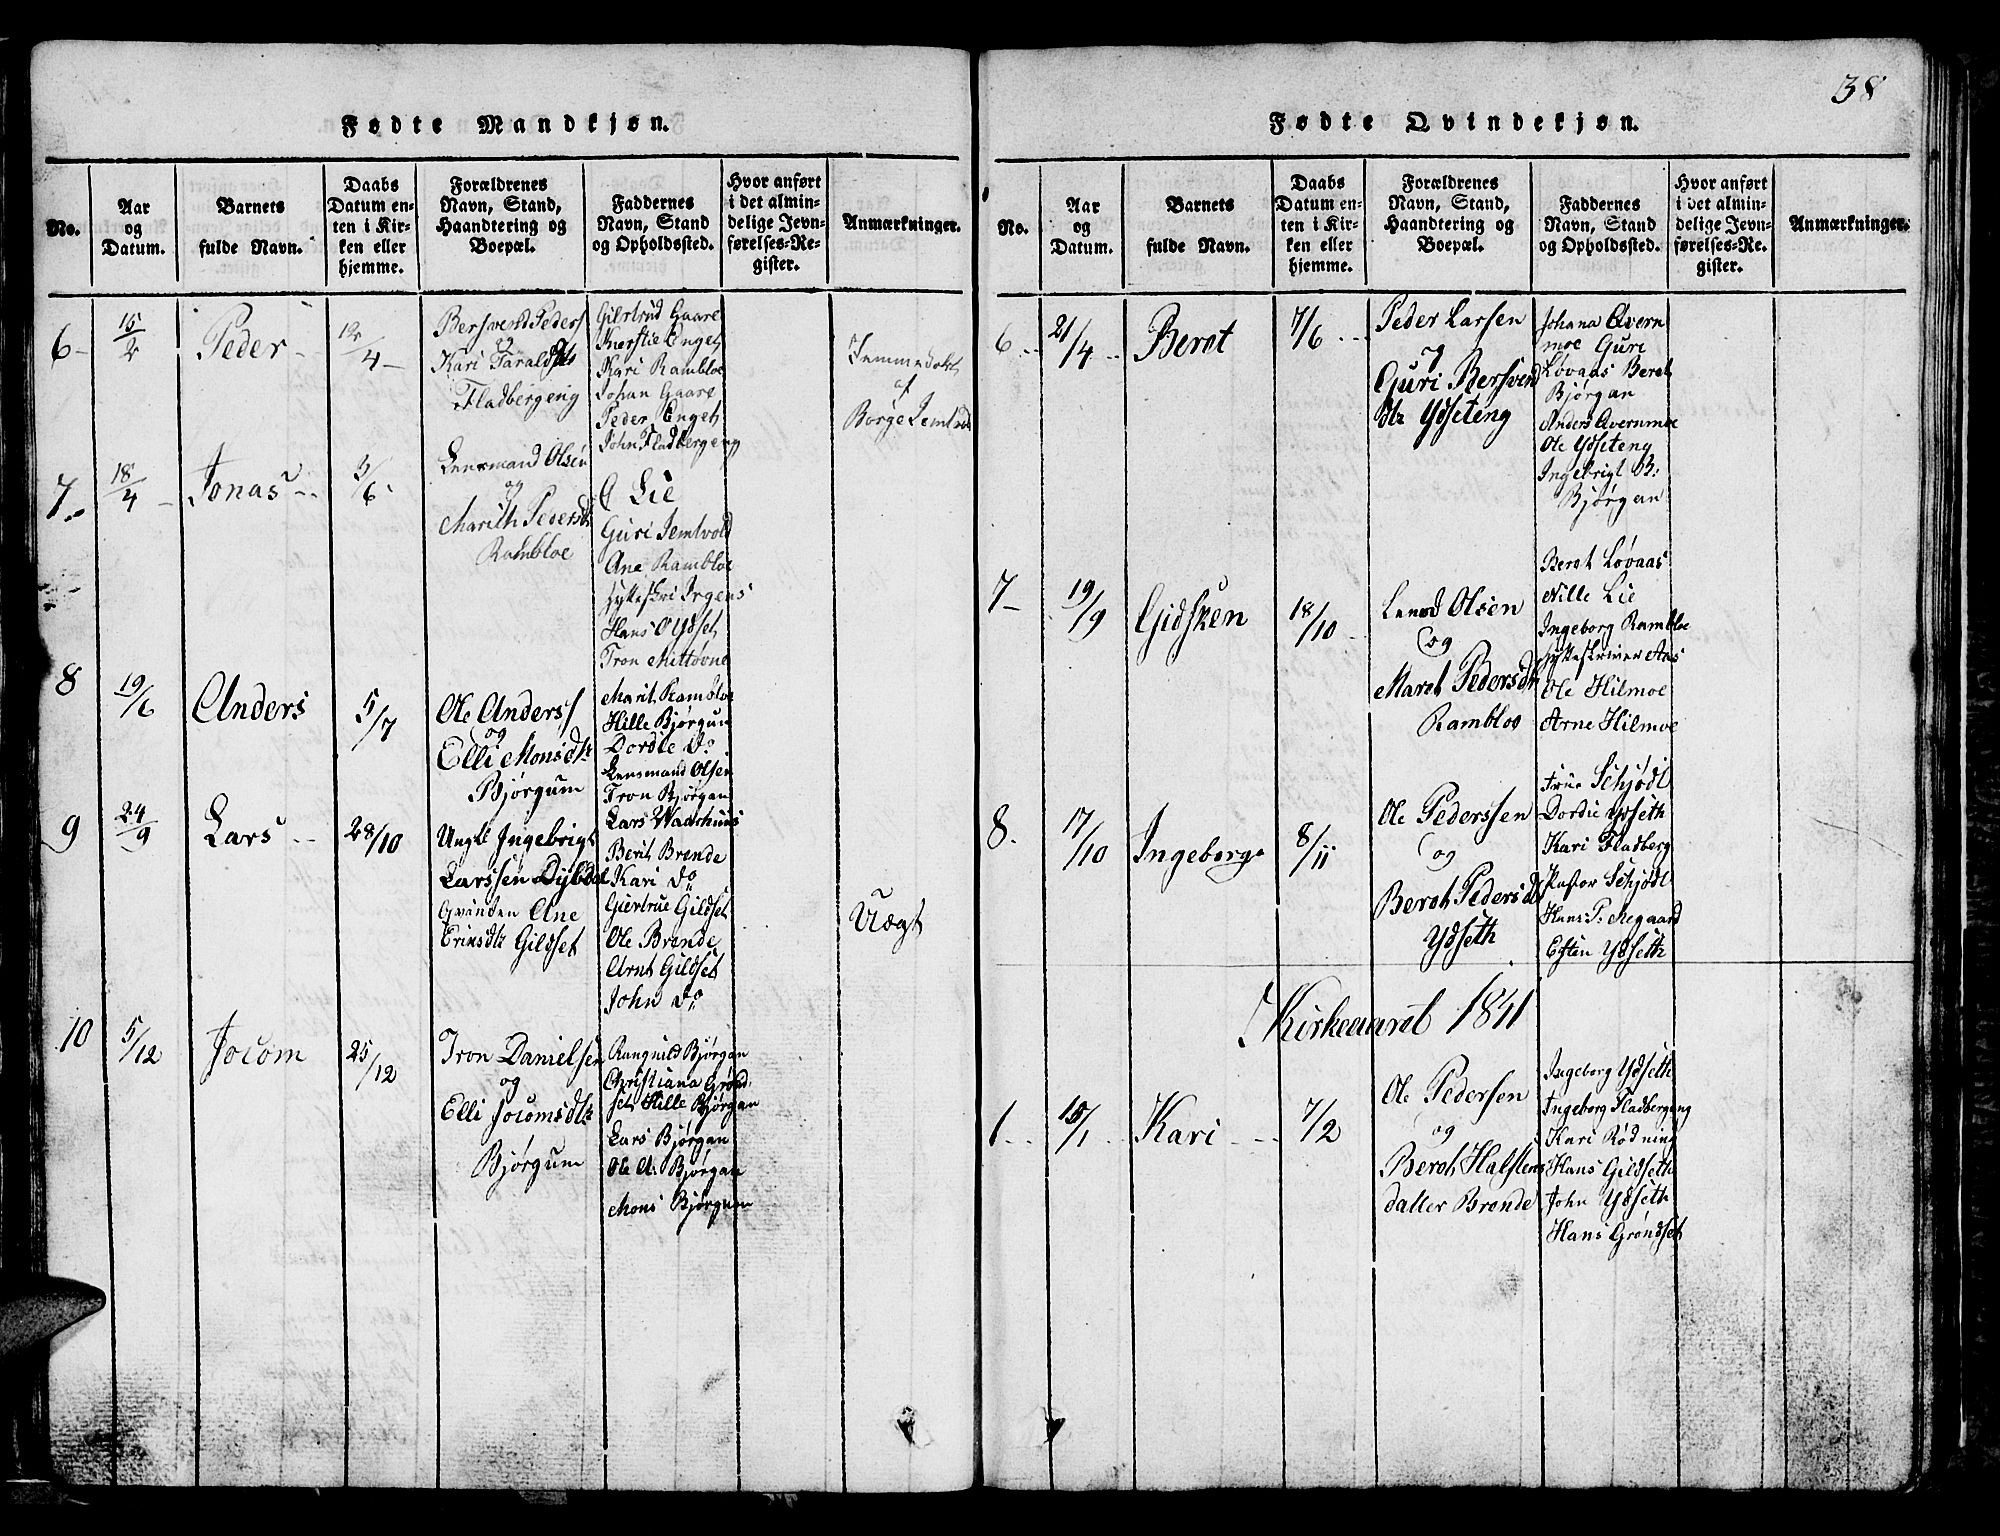 38
Fødte Mandkjøn.
No.
Aar
og
Datum.
Barnets
fulde Navn.
Daabs
Datum en-
ten i Kir-
ken eller
hjemme.
Forældrenes
Navn, Stand,
Haandtering og
Boepæl.
Faddernes
Navn, Stand
og Opholdssted.
Hvor anført
i det almin-
delige Jevn-
førelses-Re-
gister.
Anmærkninger.
6
15/2
Peder
12/4
Bersvend Peders
og
Kari Taraldsdtr
Fladbergeng
Giertrud Gaare
Kierstie Enget
Kari Rambloe
Johan Gaare
Peder Enget
John Fladbergeng
Hjemmedøbt
af
Borge Jemtvold
7
18/4
Jonas
3/6
Lensmand Olsen
og
Marith Pedersdt
Rambloe
O Lie
Guri Jemtvold
Ane Rambloe
Hytteskri Irgens
Hans O Ydset
Tron Mittøvne
8
19/6
Anders
5/7
Ole Anderss
og
Elli Monsdtr
Bjørgum
Marit Rambloe
Hille Bjørgum
Dordie Do
Lensmand Olsen
Tron Bjørgan
Lars
9
24/9
Lars
28/10
Ungkl Ingebrigt
Larssen Dybdal
Qvinden Ane
Erinsdtr Gildset
Berit Brende
Kari Do
Giertrue Gildset
Ole Brende
Arnt Gildset
John Do
Uægt
10
5/12
Jocom
25/12
Tron Danielsen
og
Elli Jocomsdtr
Bjørgum
Rangnild Bjørgan
Christiana Grønd-
set Hille Bjørgan
Lars Bjørgan
Ole A: Bjørgan
Mons Bjørgum
Fødte Qvindekjøn.
No.
Aar
og
Datum.
Barnets
fulde Navn.
Daabs
Datum en-
ten i Kir-
ken eller
hjemme.
Forældrenes
Navn, Stand,
Haandtering og
Boepæl.
Faddernes
Navn, Stand
og Opholdssted.
Hvor anført
i det almin-
delige Jevn-
førelses-Re-
gister.
Anmærkninger.
6
21/4
Berot
7/6
Peder Larsen
og
Guri Bersvend
dtr Ydseteng
Johana Qvern
moe Guri
Løvaas Berot
Bjørgan
Anders Qvernmoe
Ole Ydseteng
Ingebrigt B:
Bjørgan
7
19/9
Gidsken
18/10
Lensd Olsen
og
Maret Pedersdtr
Rambloe
Berot Løvaas
Nille Lie
Ingeborg Rambloe
Hytteskriver Aas
Ole Hilmoe
Arne Hilmoe
8.
17/10
Ingeborg
8/11
Ole Pederssen
og
Berot Pedersdtr
Ydseth
Frue Schjødt
Dordie Ydseth
Kari Fladberg
Pastor Schjødt
Hans P. Aegaard
Esten Ydseth
Kirkeaaret 1841
1
15/1
Kari
7/2
Ole Pedersen
og
Berot Halstens
datter Brende
Ingeborg Ydseth
Ingeborg Fladbergeng
Kari Rødning
Hans Gildseth
John Ydseth
Hans Grøndset